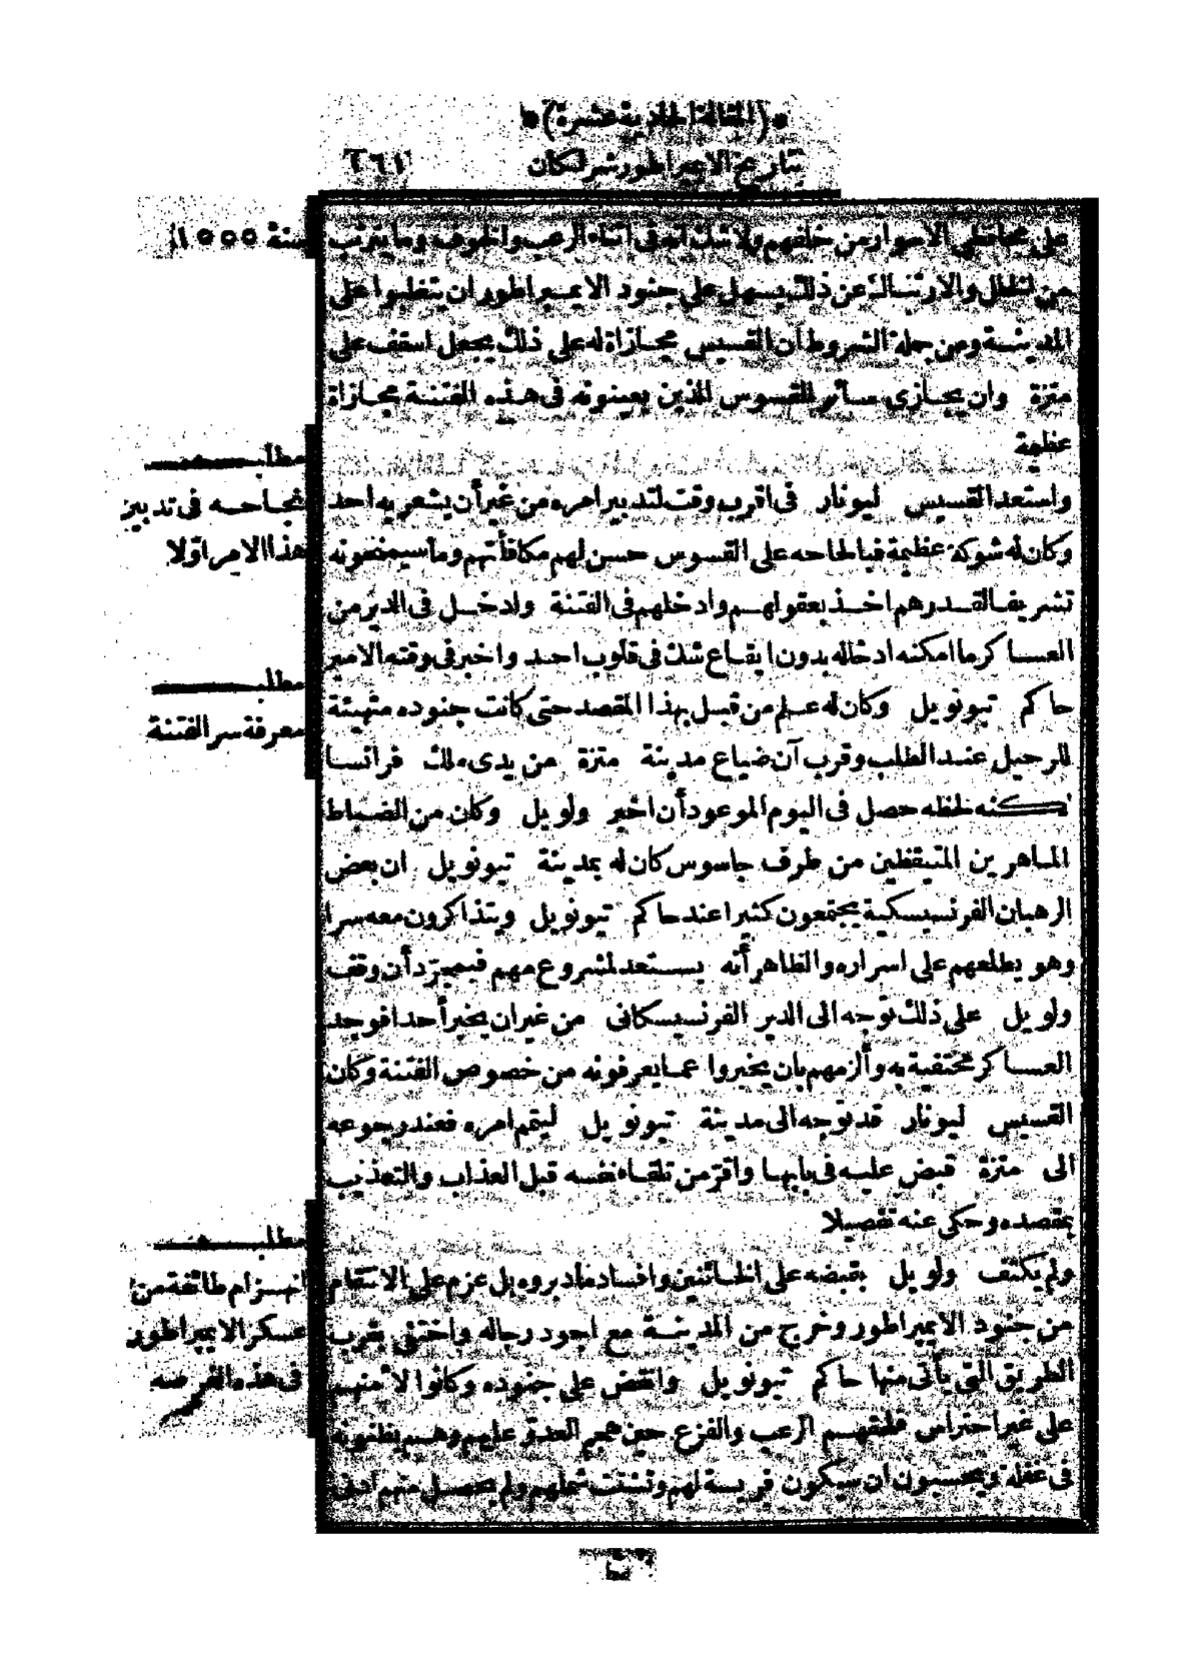 (المقالة الحادية عشرة)
بتاريخ الايمبراطور شرلكان ٢٦١
سنة ١٥٥٥
على محافظى الاسوار من خلفهم ولاشك انه فى اثناء الرعب والخوف وما يترتب
من الخلل والارتباك عن ذلك يسهل على جنود الايمبراطور ان يتغلبوا على
المدينة ومن جملة الشروط ان القسيس مجازاة له على ذلك يجعل اسقف على
متزة وان يجازى سائر القسوس الذين يعينونه فى هذه الفتنة مجازاة
عظيمة
مطلب
نجاحه فى تدبير
هذا الامر اولا
واستعد القسيس ليونار فى اقرب وقت لتدبير امره من غير أن يشعر به احد
وكان له شوكة عظيمة فبالحاحه على القسوس حسن لهم مكافأتهم وما سيمنحونه
تشريفا لقدرهم اخذ بعقولهم وادخلهم فى الفتنة وادخل فى الدير من
العساكر ما امكنه ادخاله بدون ايقاع شك فى قلوب احد واخبر فى وقته الامير
مطلب
معرفة سر الفتنة
حاكم تيونويل وكان له علم من قبل بهذا المقصد حتى كانت جنوده متهيئة
للرحيل عند الطلب وقرب آن ضياع مدينة متزة من يدى ملك فرانسا
لكنه لحظه حصل فى اليوم الموعود أن اخبر ولويل وكان من الضباط
الماهرين المتيقظين من طرف جاسوس كان له بمدينة تيونويل ان بعض
الرهبان الفرنسيسكية يجتمعون كثيرا عند حاكم تيونويل ويتذاكرون معه سرا
وهو يطلعهم على اسراره والظاهر أنه يستعد لمشروع مهم فبمجرّد أن وقف
ولويل على ذلك توجه الى الدير الفرنسيسكانى من غير ان يخبر أحدا فوجد
العساكر مختفية به وألزمهم بان يخبروا عما يعرفونه من خصوص الفتنة وكان
القسيس ليونار قد توجه الى مدينة تيونويل ليتمم امره فعند رجوعه
الى متزة قبض عليه فى بابها واقرّ من تلقاء نفسه قبل العذاب والتعذيب
بمقصده وحكى عنه تفصيلا
مطلب
انهزام طائفة من
عسكر الايمبراطور
فى هذه الفرصة
ولم يكتف ولويل بقبضه على الخائنين وافساد ما دبروه بل عزم على الانتقام
من جنود الايمبراطور وخرج من المدينة مع اجود رجاله واختفى بقرب
الطريق التى يأتى منها حاكم تيونويل وانقض على جنوده وكانوا لأمنهم
على غير احتراس فلحقهم الرعب والفزع حين هجم العدوّ عليهم وهم يظنونه
فى غفلة ويحسبون ان سيكون فريسة لهم وتشتت شملهم ولم يحصل منهم ادنى